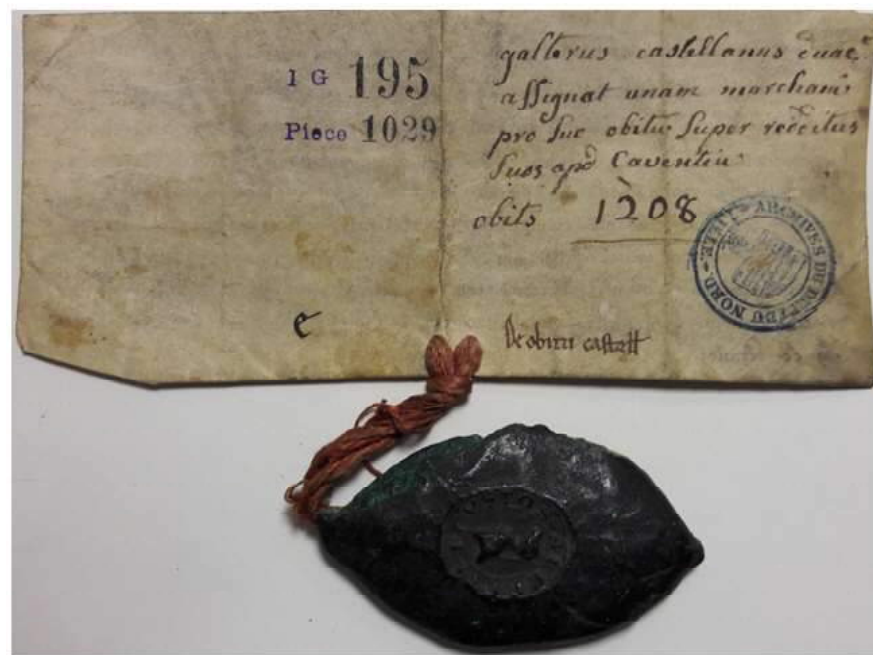 1 G 195
Piece 1029
galterus castellanus duac
assignat unam marcham
pro suo obitu super redditus
suos apd Caventin
obits 1208
ARCHIVES DU DEPT DU NORD - LILLE -
e
De obitu castell